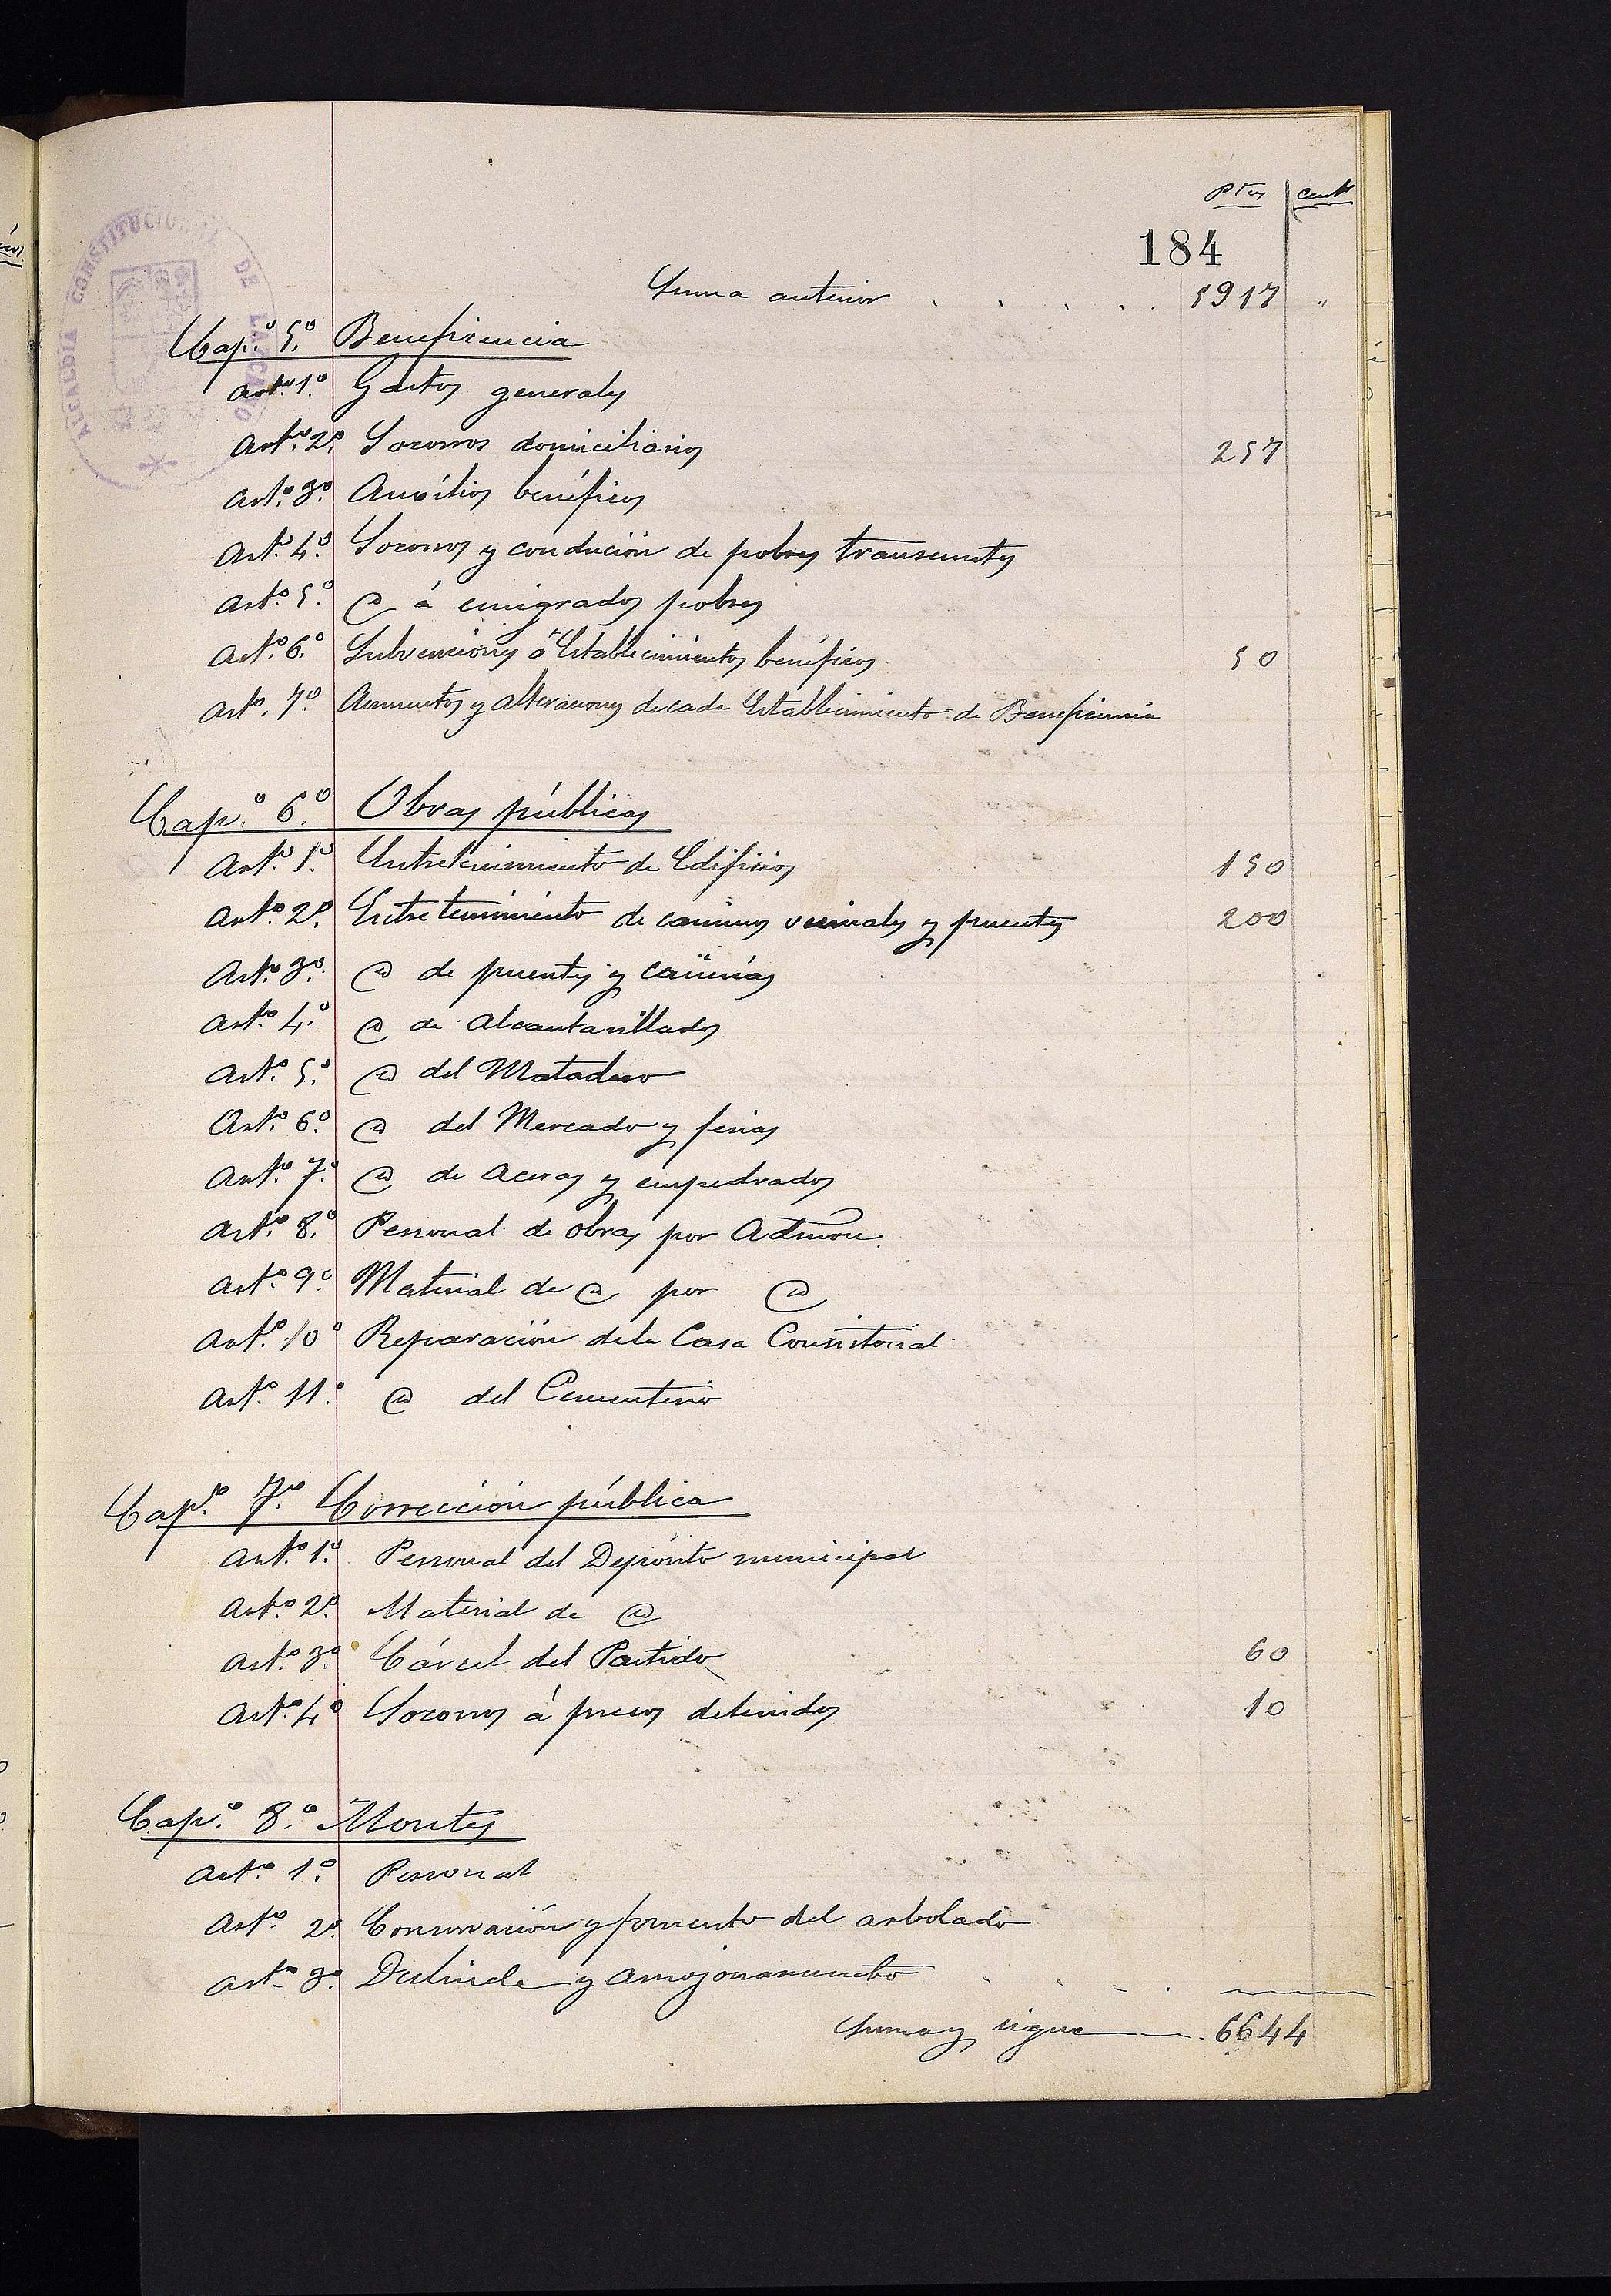 Ptas cents
184
Suma anterior . . . . . 5917 "
Cap.º 5.º Beneficencia
Art.º 1.º Gastos generales
Art.º 2.º Socorros domiciliarios 257
Art.º 3.º Auxilios benéficos
Art.º 4.º Socorros y condución de pobres transeuntes
Art.º 5.º @ á emigrados pobres
Art.º 6.º Subvenciones á Establecimientos benéficos 50
Art.º 7.º Aumentos y alteraciones de cada Establecimiento de Beneficencia
Cap.º 6.º Obras públicas
Art.º 1.º Entretenimiento de Edificios 150
Art.º 2.º Entretenimiento de caminos vecinales y puentes 200
Art.º 3.º @ de fuentes y cañerías
Art.º 4.º @ de Alcantarillados
Art.º 5.º @ del Matadero
Art.º 6.º @ del Mercado y ferias
Art.º 7.º @ de Aceras y empedrados
Art.º 8.º Personal de obras por Admón.
Art.º 9.º Material de @ por @
Art.º 10º Reparación de la Casa Consistorial
Art.º 11.º @ del Cementerio
Cap.º 7.º Corrección pública
Art.º 1.º Personal del Depósito municipal
Art.º 2.º Material de @
Art.º 3.º Cárcel del Partido 60
Art.º 4.º Socorros á presos detenidos 10
Cap.º 8.º Montes
Art.º 1.º Personal
Art.º 2.º Conservación y fomento del arbolado
Art.º 3.º Deslinde y amojonamiento
Suma y sigue 6644
ALCALDIA CONSTITUCIONAL DE LAZCANO